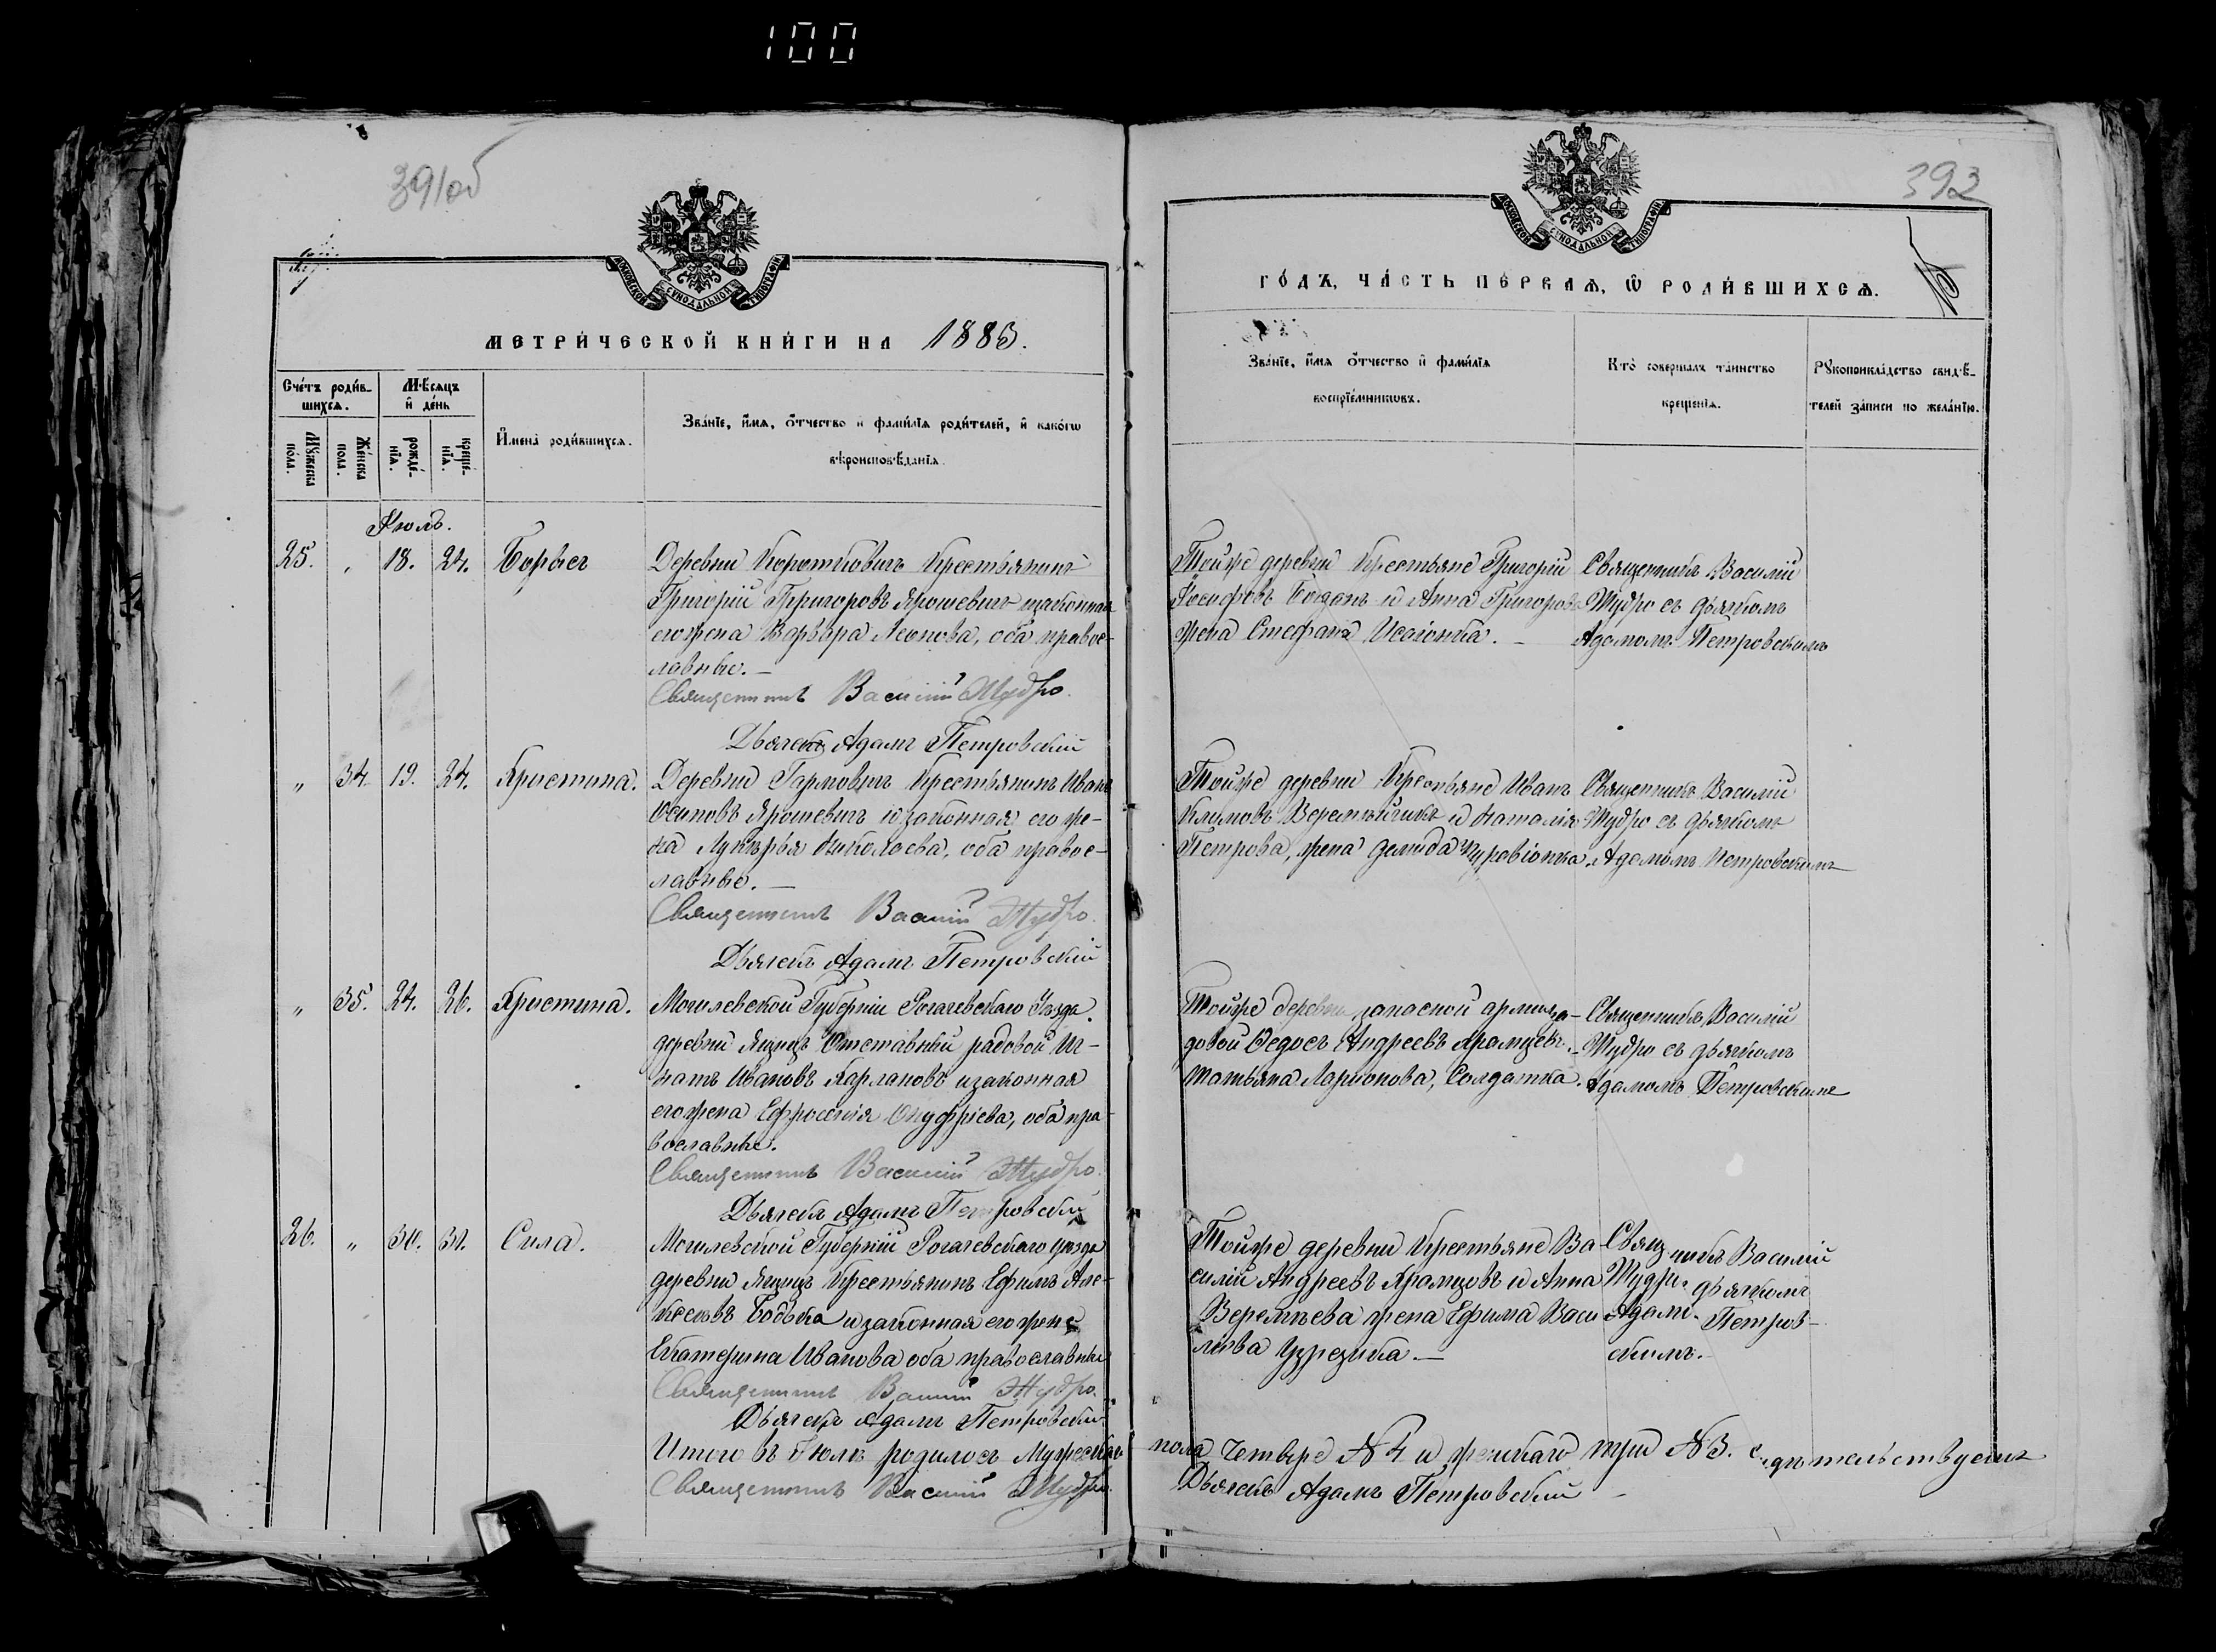 100
391об
МЕТРИ́ЧЕСКОЙ КНИ́ГИ НА 1883.
Сче́тъ роди́в-
шихсѧ.
Мѣ́сѧцъ
и҆ де́нь
Мꙋ́жеска
по́ла.
Же́нска
пола.
рожде́-
нїѧ.
креще́-
нїѧ.
И҆мена̀ роди́вшихсѧ.
Зва́нїе, и҆́мѧ, ѻ҆́тчество и҆ фами́лїѧ роди́телей, и҆ како́гѡ
вѣроисповѣ́данїѧ.
Іюль.
25. „ 18. 24. Борисъ
Деревни Коротковичъ Крестьянинъ
Григорій Григоровъ Ярошевичъ изаконная
егожена Варвара Леонова, оба правос-
лавные. —
Священникъ Василій Мудро.
Дьячекъ Адамъ Петровскій
„ 34. 19. 24. Христина.
Деревни Гармовичъ Крестьянинъ Иванъ
Осиповъ Ярошевичъ изаконная его же-
на Лукерья Николаева, оба правос-
лавные. —
Священникъ Василій Мудро.
Дьячекъ Адамъ Петровскій
„ 35. 24. 26. Христина.
Могилевской Губерніи Рогачевскаго Уезда.
деревни Ящицъ Отставный радовой Иг-
натъ Ивановъ изаконная
егожена Ефросинія Онуфріева, оба пра-
вославные.
Священникъ Василій Мудро.
Дьячекъ Адамъ Петровскій
26. „ 30. 31. Сила.
Могилевской Губерніи Рогачевскаго уезда
деревни Ящицъ Крестьянинъ Ефимъ Але-
ксеевъ Бодька изаконная его жена
Екатерина Иванова оба православные
Священникъ Василій Мудро.
Дьячекъ Адамъ Петровскій
Итого въ Іюлѣ родилось Мужескаго
Священникъ Василій Мудро.
392
ГО́ДЪ, ЧА́СТЬ ПЕ́РВАѦ, Ѡ҆ РОДИ́ВШИХСѦ.
Зва́нїе, и҆́мѧ ѻ҆́тчество и҆ фами́лїѧ
воспрїе́мникѡвъ.
Кто̀ соверша́лъ та́инство
креще́нїѧ.
Рꙋкоприкла́дство свидѣ́-
телей за́писи по жела́нїю.
Тойже деревни Крестьяне Григорій
Іосифовъ Богданъ и Анна Григорова
жена Стефана Исаіонка. —
Священникъ Василій
Мудро съ дьячкомъ
Адамомъ Петровскимъ
Тойже деревни Крестьяне Иванъ
Климовъ Веремейчикъ и Наталія
Петрова, жена Демида
Священникъ Василій
Мудро съ дьячкомъ
Адамомъ Петровскимъ
Тойже деревни запасной арміи ра-
довой Ѳедосъ Андреевъ Храмцевъ.
Татьяна Ларионова, Солдатка.
Священникъ Василій
Мудро съ дьячкомъ
Адамомъ Петровскимъ
Тойже деревни Крестьяне Ва-
силій Андреевъ Храмцовъ и Анна
Веремѣева жена Ефима Васи-
льева
Священникъ Василій
Мудро дьячкомъ
Адам. Петров-
скимъ.
пола четыре № 4 и женскаго три № 3. свидѣтельствуемъ
Дьячекъ Адамъ Петровскій